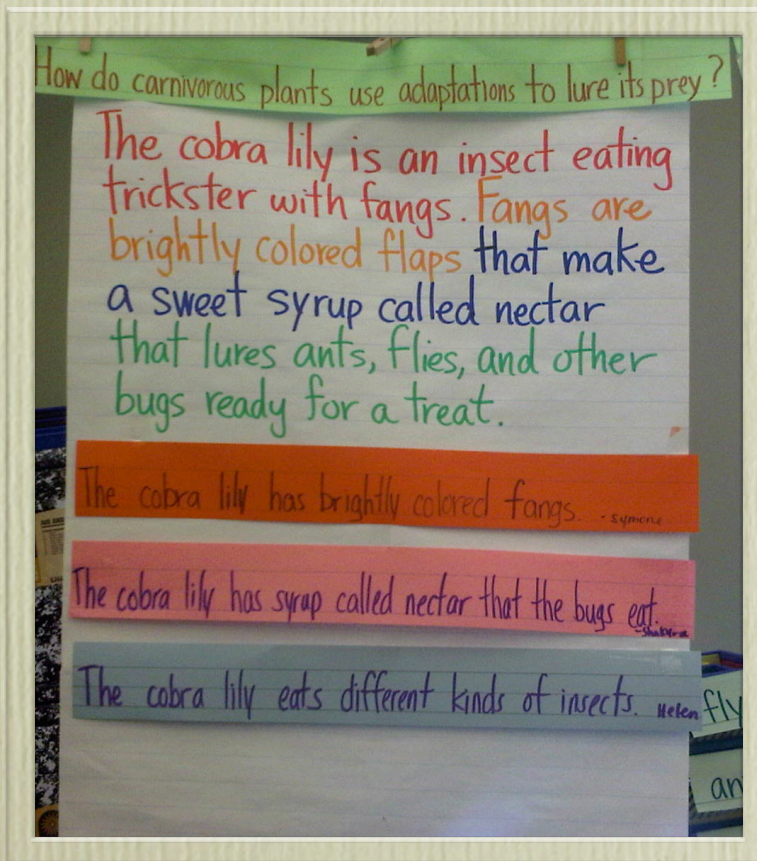 How do carnivorous plants use adaptations to lure its prey?
The cobra lily is an insect eating
trickster with fangs. Fangs are
brightly colored flaps that make
a sweet syrup called nectar
that lures ants, flies, and other
bugs ready for a treat.
The cobra lily has brightly colored fangs. -Symone
The cobra lily has syrup called nectar that the bugs eat.
The cobra lily eats different kinds of insects. Helen
fly
an